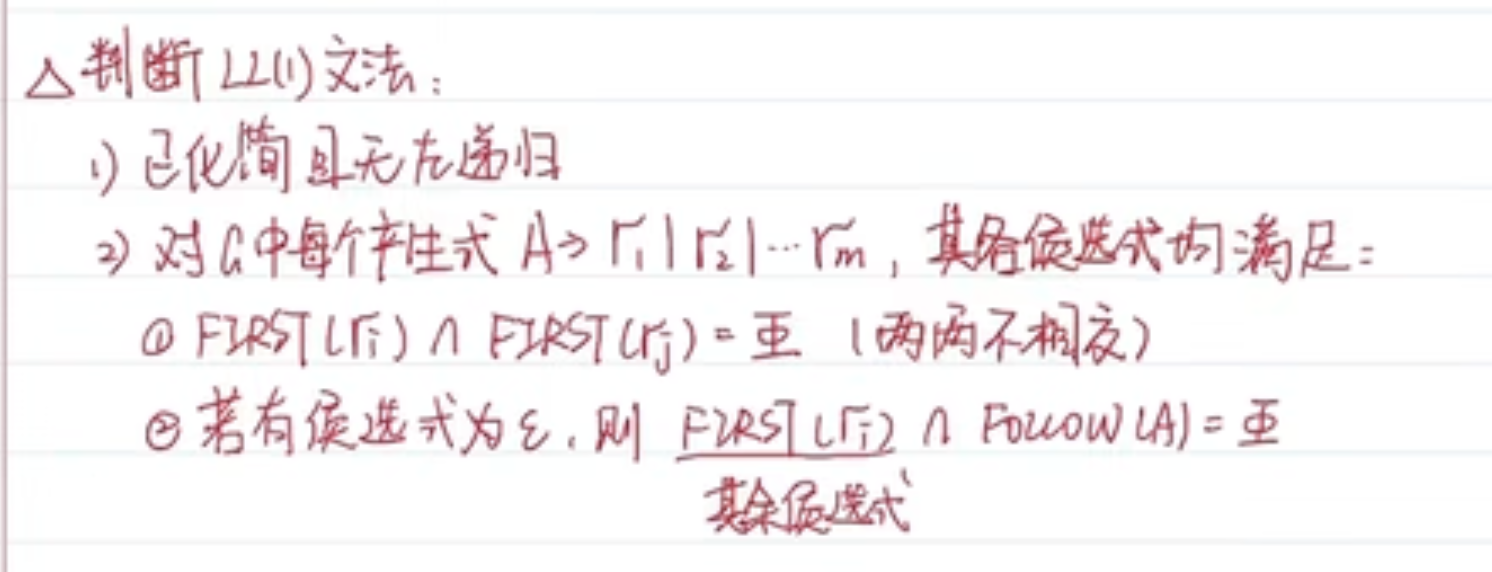 △判断 LL(1)文法:
1) 已化简且无左递归
2) 对G中每个产生式 A→ Γ₁|Γ₂|…Γm, 其各侯选式均满足:
① FIRST(Γi) ∩ FIRST(Γj) = Φ (两两不相交)
② 若有侯选式为ε, 则 FIRST(Γi) ∩ FOLLOW(A) = Φ
其余侯选式